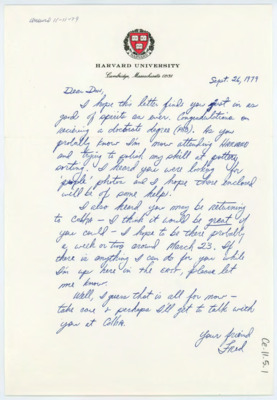 HARVARD UNIVERSITY
Cambridge, Massachusetts 02138
Sept. 26, 1979
Dear Dov,
I hope this letter finds you just in as
good of spirits as ever. Congratulations on
receiving a doctorate degree (MD). As you
probably know I'm now attending HARVARD
and trying to polish my skill at pottery
sorting. I heard you were looking for
"people" photos and I hope those enclosed
will be of some help.
I also heard you may be returning
to — I think it would be great if
you could — I hope to be there probably
a week or two around March 23. If there
is anything I can do for you while
I'm up here in the east, please let
me know.
Well, I guess that is all for now —
take care & perhaps I'll get to talk with
you at
Your friend
Fred
Ce.11.5.1